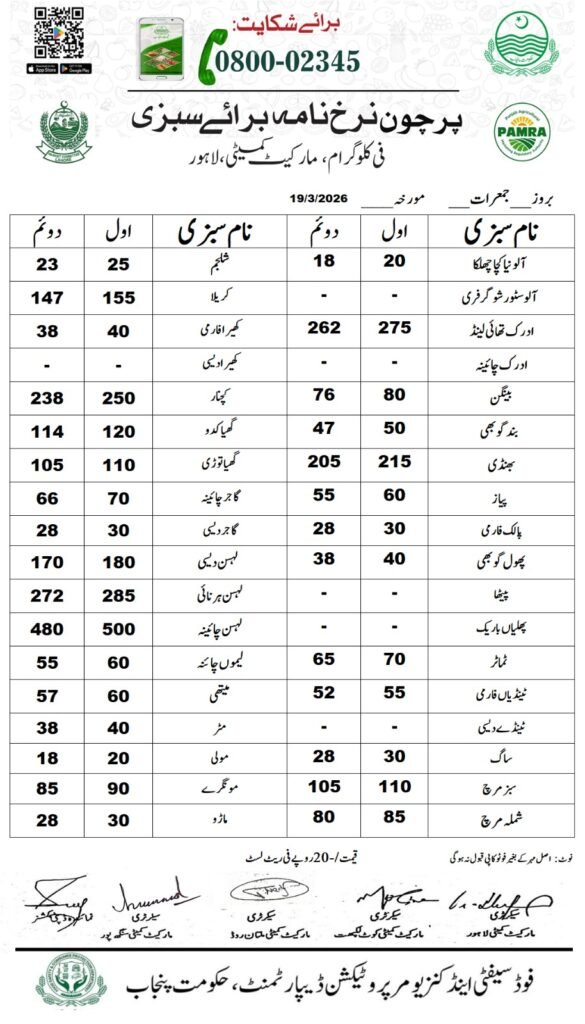 برائے شکایت:
0800-02345
App Store Google Play
پرچون نرخ نامہ برائے سبزی
PAMRA
فی کلوگرام، مارکیٹ کمیٹی، لاہور
بروز___جمعرات___ مورخہ____ 19/3/2026
نام سبزی اول دوئم نام سبزی اول دوئم
آلو نیا کچا چھلکا 20 18 شلجم 25 23
آلو سٹور شوگر فری - - کریلا 155 147
ادرک تھائی لینڈ 275 262 کھیرا فارمی 40 38
ادرک چائینہ - - کھیرا دیسی - -
بینگن 80 76 کچنار 250 238
بند گوبھی 50 47 گھیا کدو 120 114
بھنڈی 215 205 گھیا توڑی 110 105
پیاز 60 55 گاجر چائینہ 70 66
پالک فارمی 30 28 گاجر دیسی 30 28
پھول گوبھی 40 38 لہسن دیسی 180 170
پیٹھا - - لہسن ہرنائی 285 272
پھلیاں باریک - - لہسن چائینہ 500 480
ٹماٹر 70 65 لیموں چائنہ 60 55
ٹینڈیاں فارمی 55 52 میتھی 60 57
ٹینڈے دیسی - - مٹر 40 38
ساگ 30 28 مولی 20 18
سبز مرچ 110 105 مونگرے 90 85
شملہ مرچ 85 80 ماڑو 30 28
نوٹ: اصل مہر کے بغیر فوٹو کاپی قبول نہ ہوگی قیمت /-20 روپے فی ریٹ لسٹ
سیکرٹری سیکرٹری سیکرٹری سیکرٹری
مارکیٹ کمیٹی لاہور مارکیٹ کمیٹی کوٹ لکھپت مارکیٹ کمیٹی ملتان روڈ مارکیٹ کمیٹی سنگھ پورہ
فوڈ سیفٹی اینڈ کنزیومر پروٹیکشن ڈیپارٹمنٹ، حکومت پنجاب